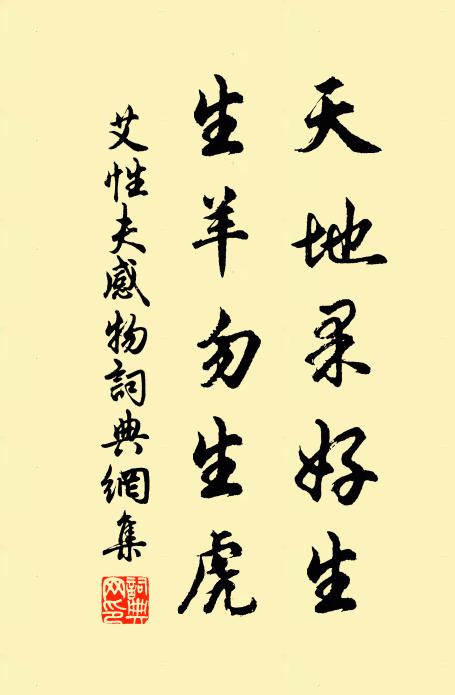 天地果好生
生羊勿生虎
艾性夫感物詞典網集
詞典网印